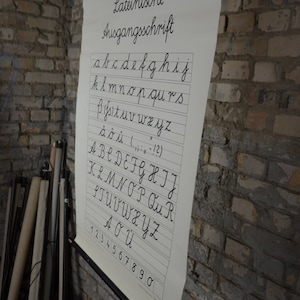 Lateinische
Ausgangsschrift
a b c d e f g h i j
k l m n o p q u r s
ß t u v w x y z
ä ö ü
A B C D E F G H I J
K L M N O P Qu R
S T U V W X Y Z
Ä Ö Ü
1 2 3 4 5 6 7 8 9 0